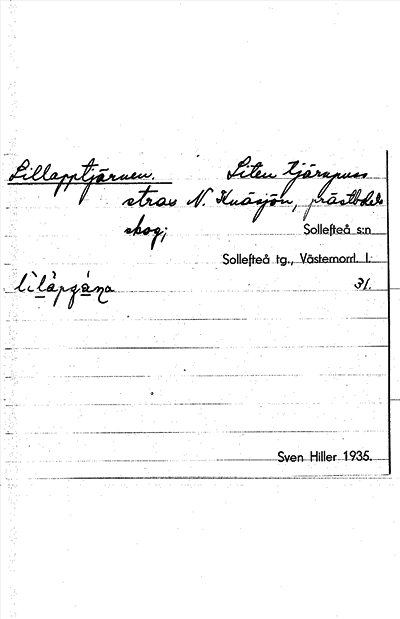 Lillapptjärnen. Liten tjärnpuss
strax N. Knäsjön, prästbols
skog; Sollefteå s:n
Sollefteå tg., Västernorrl. l.
31.
Sven Hiller 1935.